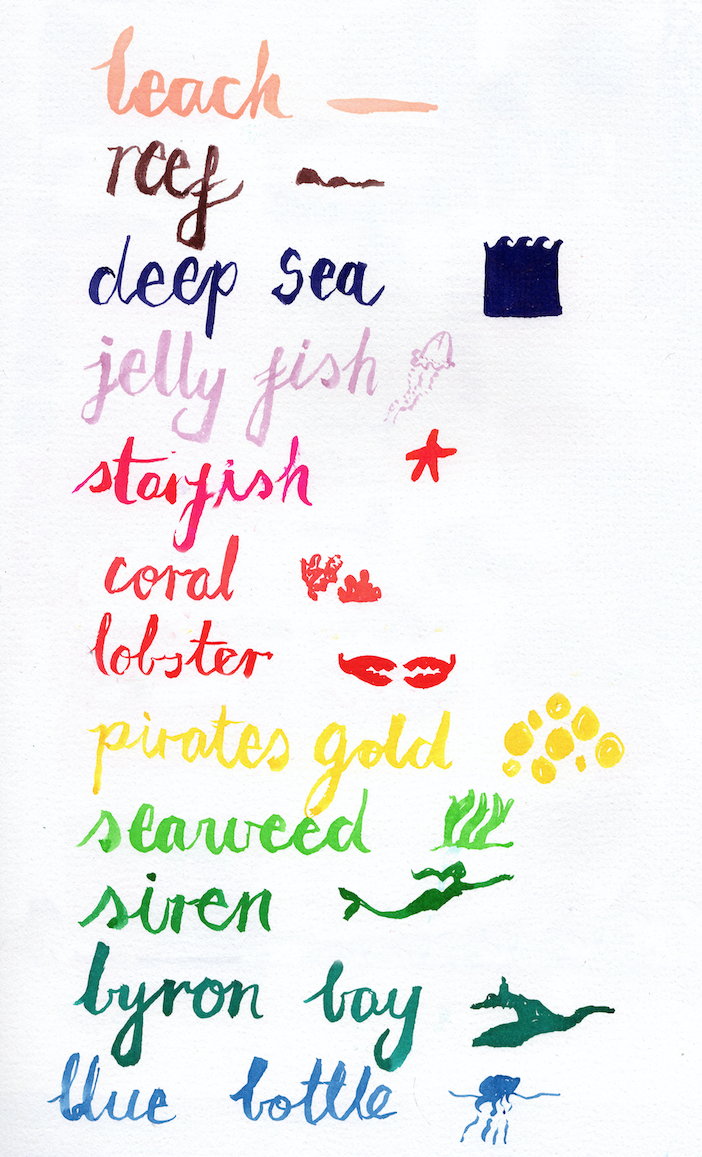 beach
reef
deep sea
jelly fish
starfish
coral
lobster
pirates gold
seaweed
siren
byron bay
blue bottle